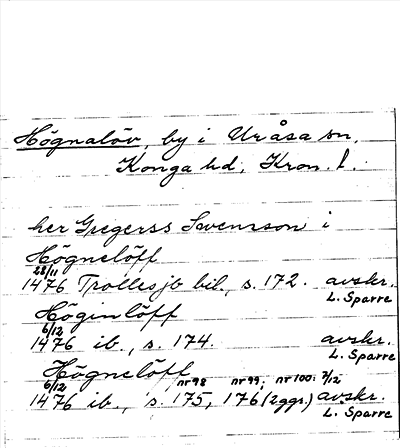 Högnalöv, by i Uråsa sn,
Konga hd, Kron. l.
her Gregerss Swensson i
Högnelöff
28/11
1476 Trollesjb bil., s. 172. avskr.
L. Sparre
Höginlöff
6/12
1476 ib., s. 174. avskr.
L. Sparre
Högnelöff
6/12 nr 98 nr 99; nr 100: 7/12
1476 ib., s. 175, 176 (2ggr.) avskr.
L. Sparre